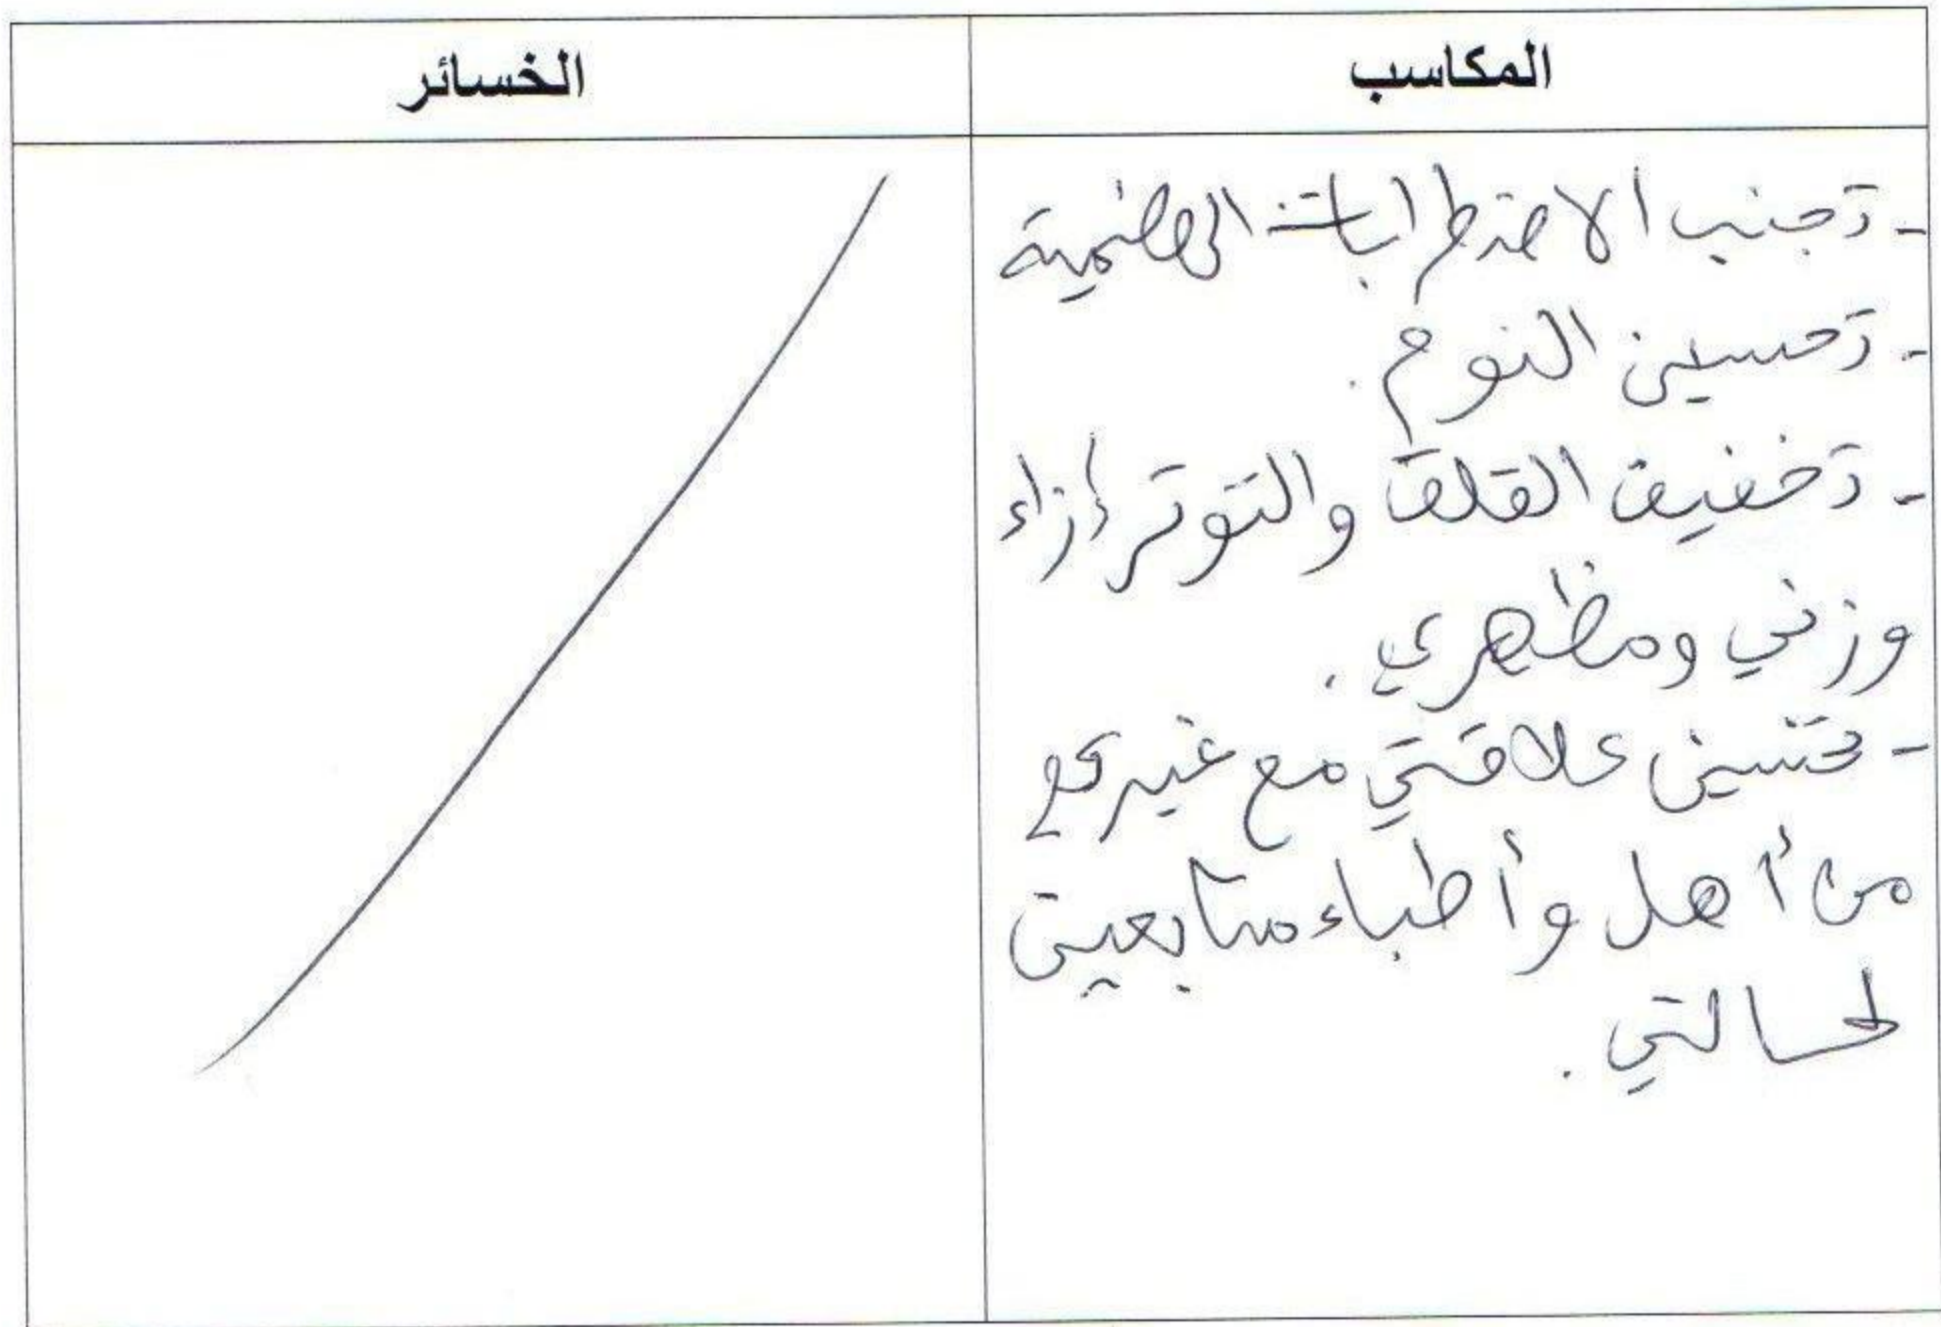 المكاسب
الخسائر
- تجنب الاضطرابات الهضمية
- تحسين النوم.
- تخفيف القلق والتوتر إزاء
وزني ومظهري.
- تحسين علاقتي مع غيري
من أهل وأطباء متابعين
لحالتي.